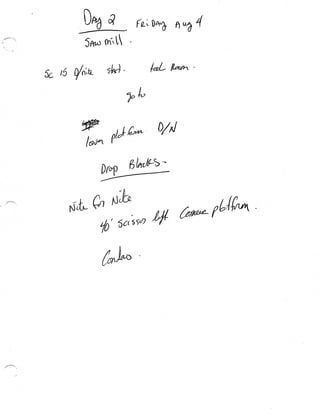 DAY 2 FRIDAY Aug 4
SAWMILL.
Sc 15 D/nite start. tool Room.
go to
lower platform D/N
Drop Blacks-
Nite for Nite
40' Scissor lift Camera platform.
Condors.